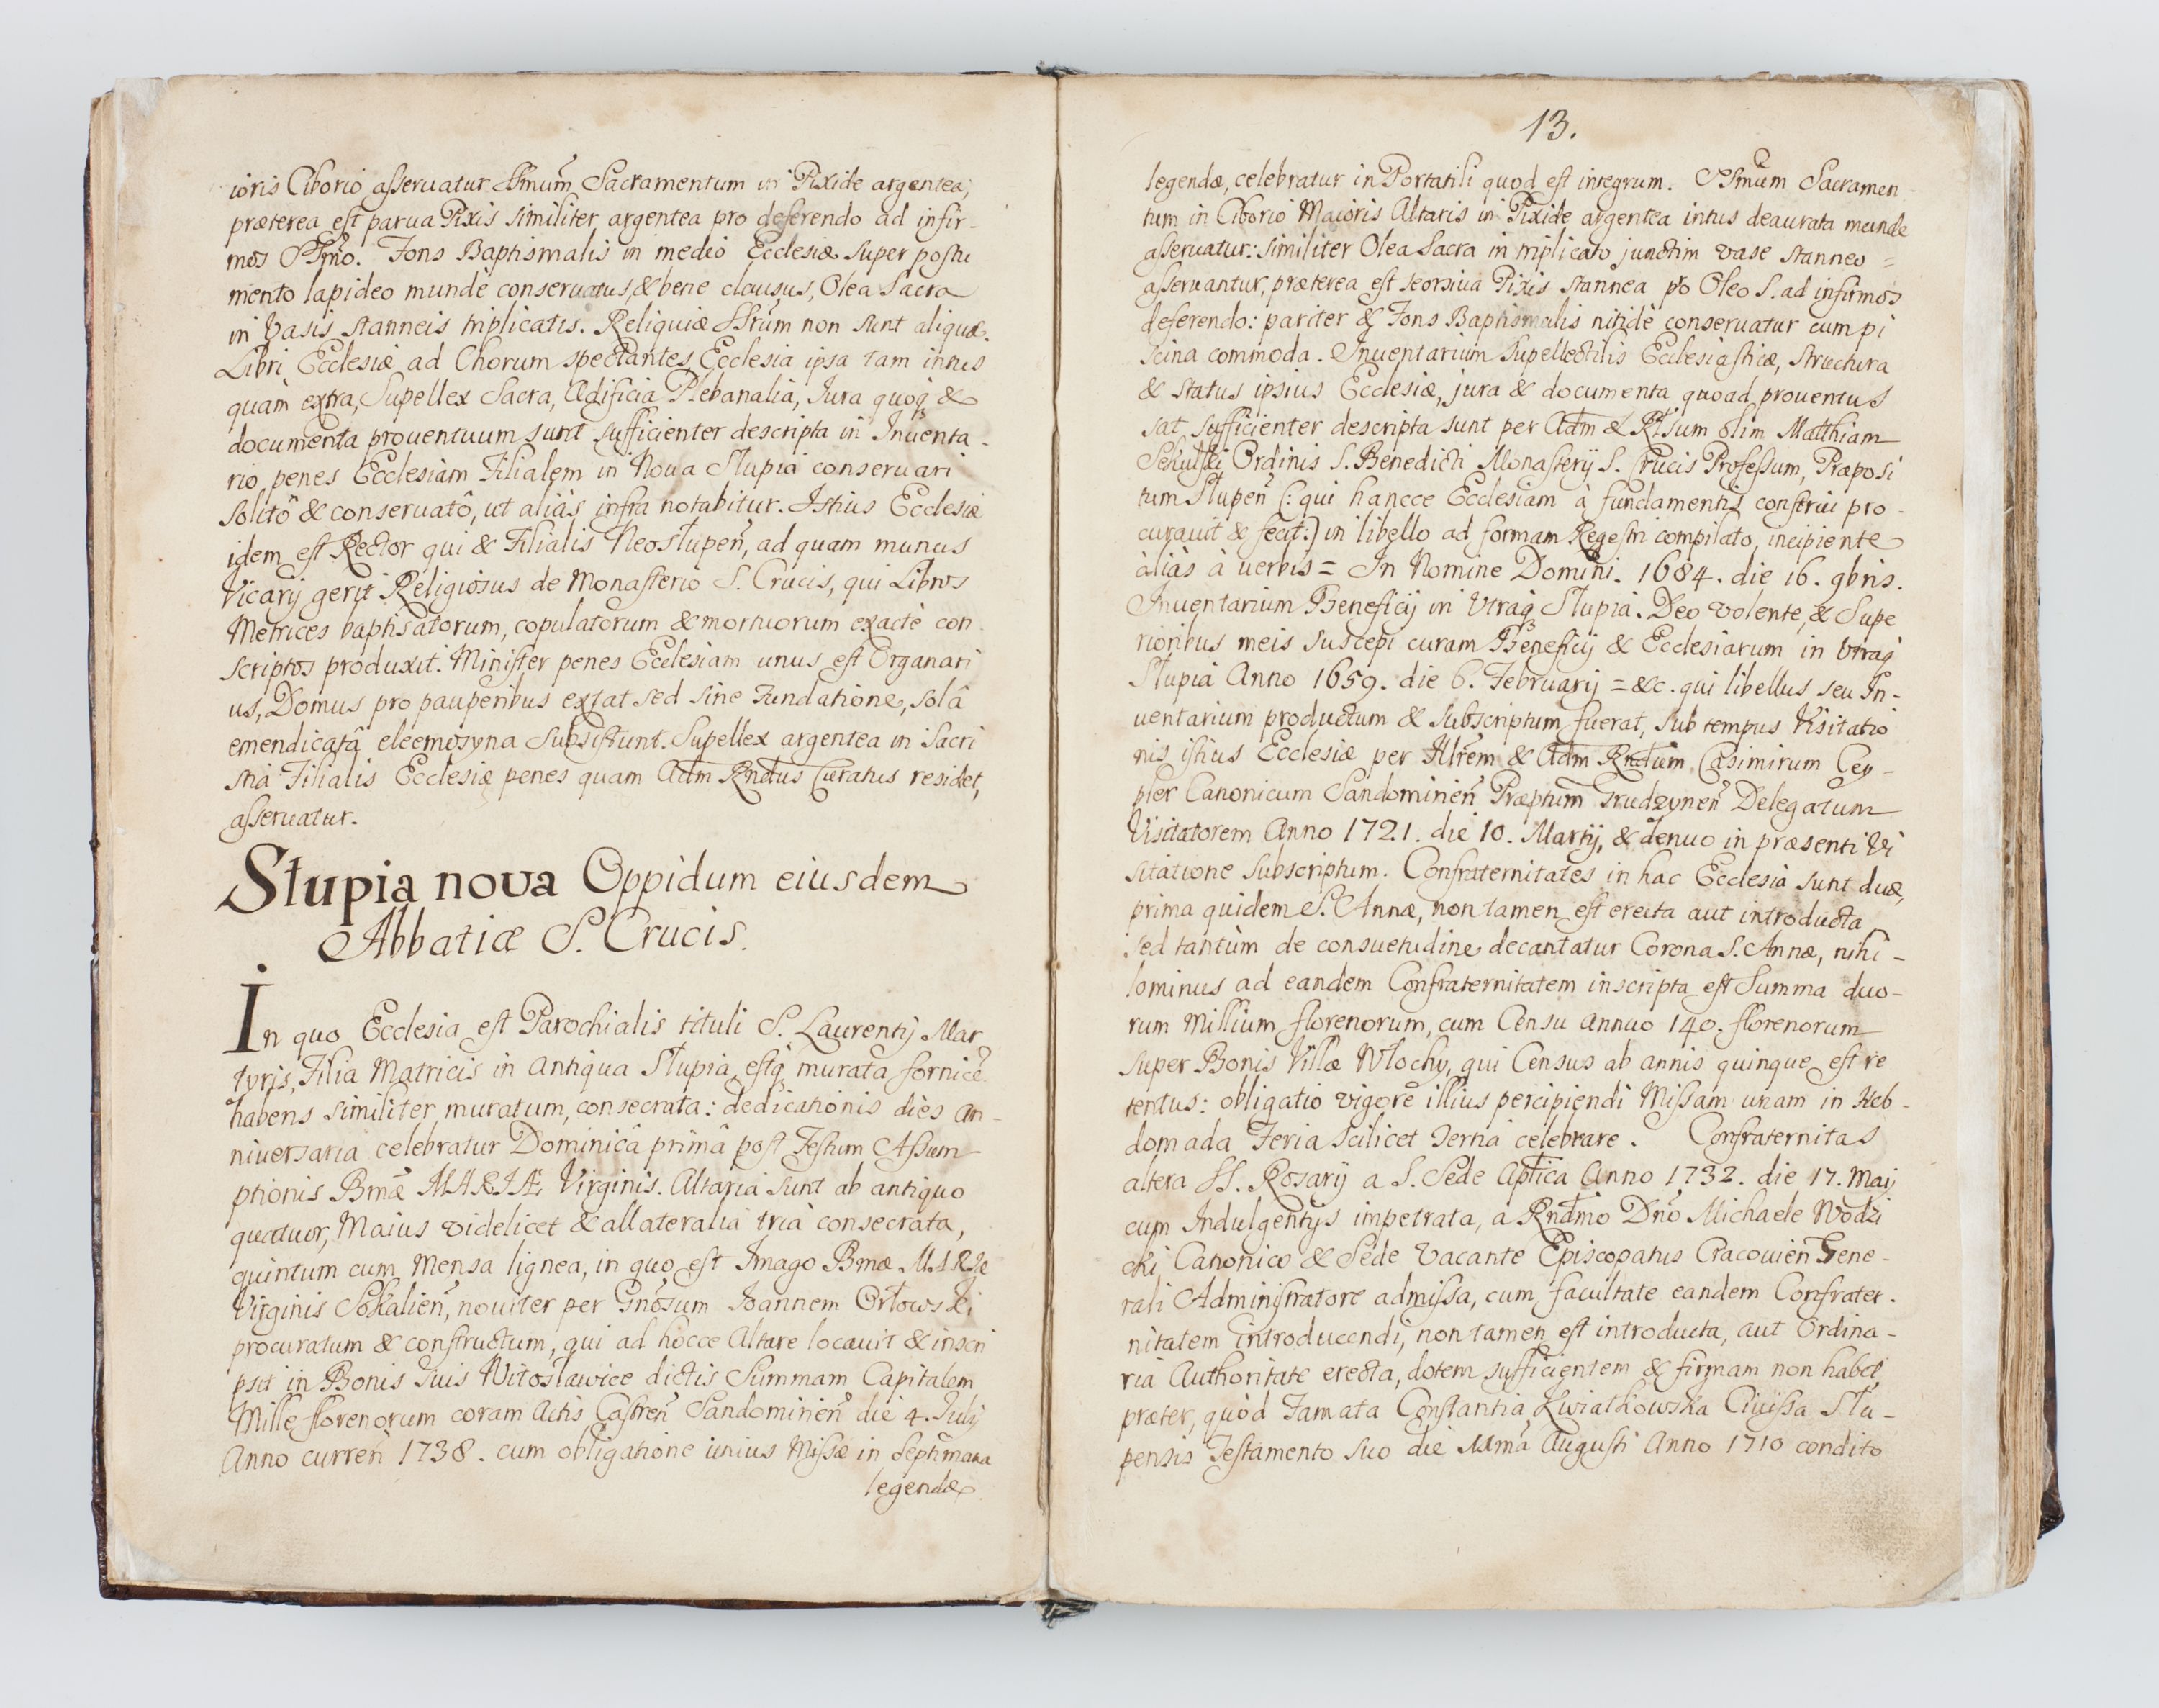 ioris Ciborio asseruatur SSmum Sacramentum in Pixide argentea,
præterea est parua Pixis similiter argentea pro deferendo ad infir-
mos SSmo. Fons Baptismalis in medio Ecclesiæ super postu
mento lapideo mundè conseruatus, & bene clausus, Olea Sacra
in Vasis stanneis triplicatis. Reliquiæ SSrum non sunt aliquæ.
Libri Ecclesiæ ad Chorum spectantes, Ecclesia ipsa tam intus
quàm extra, Supellex Sacra, Ædificia Plebanalia, Jura quoq3 &
documenta prouentuum sunt sufficienter descripta in Inuenta-
rio penes Ecclesiam Filialem in Noua Słupia conseruari
solitô & conseruatô, ut aliàs infra notabitur. Istius Ecclesiæ
idem est Rector qui & Filialis Neosłupeñ, ad quam munus
Vicarij gerit Religiosus de Monasterio S. Crucis, qui Libros
Metrices baptisatorum, copulatorum & mortuorum exactè con
scriptos produxit. Minister penes Ecclesiam unus est Organari
us, Domus pro pauperibus extat sed sine Fundatione, solâ
emendicatâ eleemosyna subsistunt. Supellex argentea in Sacri
stia Filialis Ecclesiæ penes quam Adm Rndus Curatus residet,
asseruatur.
Słupia nova Oppidum eiusdem
Abbatiæ S. Crucis.
In quo Ecclesia est Parochialis tituli S. Laurentij Mar
tyris, Filia Matricis in antiqua Słupia, estq3 murata fornicê
habens similiter muratum, consecrata: dedicationis dies an-
niuersaria celebratur Dominicâ primâ post Festum Assum-
ptionis Bmæ MARIÆ Virginis. Altaria sunt ab antiquo
quatuor, Maius videlicet & allateralia tria consecrata,
quintum cum Mensa lignea, in quo est Imago Bmæ MARIÆ
Virginis Sokalieñ, nouiter per Gnosum Joannem Orłowski
procuratum & constructum, qui ad hocce Altare locauit & inscri
psit in Bonis suis Witosławice dictis Summam Capitalem
Mille florenorum coram Actis Castreñ Sandomirieñ die 4. Julij
Anno curreñ 1738. cum obligatione unius Missæ in septimana
legendæ
13.
legendæ, celebratur in Portatili quod est integrum. SSmum Sacramen
tum in Ciborio Maioris Altaris in Pixide argentea intus deaurata munde
asseruatur: similiter Olea Sacra in triplicato junctim vase stanneo =
asseruantur, præterea est seorsiua Pixis stannea pro Oleo S. ad infirmos
deferendo: pariter & Fons Baptismalis nitidè conseruatur cum pi
scina commoda. Inuentarium Supellectilis Ecclesiasticæ, structura
& status ipsius Ecclesiæ, jura & documenta quoad prouentus
sat sufficienter descripta sunt per Adm & Rsum olim Matthiam
Sekulski Ordinis S. Benedicti Monasterij S. Crucis Professum, Præposi
tum Słupeñ (: qui hancce Ecclesiam à fundamentis construi pro-
curauit & fecit:) in libello ad formam Regestri compilato, incipiente
àliàs à uerbis = In Nomine Domini. 1684. die 16. 9bris.
Inuentarium Beneficij in Vtraq3 Słupia. Deo volente, & Supe
rioribus meis suscepi curam Beneficij & Ecclesiarum in Vtraq3
Słupia Anno 1659. die 6. Februarij = &c. qui libellus seu In-
uentarium productum & subscriptum fuerat, sub tempus Visitatio
nis istius Ecclesiæ per Illrem & Adm Rndum Casimirum Cey-
pler Canonicum Sandomirieñ Præptum Trudzyneñ Delegatum
Visitatorem Anno 1721. die 10. Martij, & denuo in præsenti Vi
sitatione subscriptum. Confraternitates in hac Ecclesia sunt duæ,
prima quidem S. Annæ, non tamen est erecta aut introducta
sed tantùm de consuetudine decantatur Corona S. Annæ, nihi-
lominus ad eandem Confraternitatem inscripta est Summa duo-
rum Millium florenorum, cum Censu annuo 140. florenorum
super Bonis Villæ Włochy, qui Census ab annis quinque est re
tentus: obligatio vigore illius percipiendi Missam unam in Heb-
domada Feria scilicet Tertia celebrare. Confraternitas
altera SS. Rosarij a S. Sede Aptica Anno 1732. die 17. Maij
cum Indulgentijs impetrata, a Rndmo Dno Michaele Wodzi
cki Canonico & Sede Vacante Episcopatus Cracouieñ Gene-
rali Administratore admissa, cum facultate eandem Confrater-
nitatem introducendi, non tamen est introducta, aut Ordina-
ria Authoritate erecta, dotem sufficientem & firmam non habet,
præter, quòd Famata Constantia Kwiatkowska Ciuissa Słu-
pensis Testamento suo die Augusti Anno 1710 condito